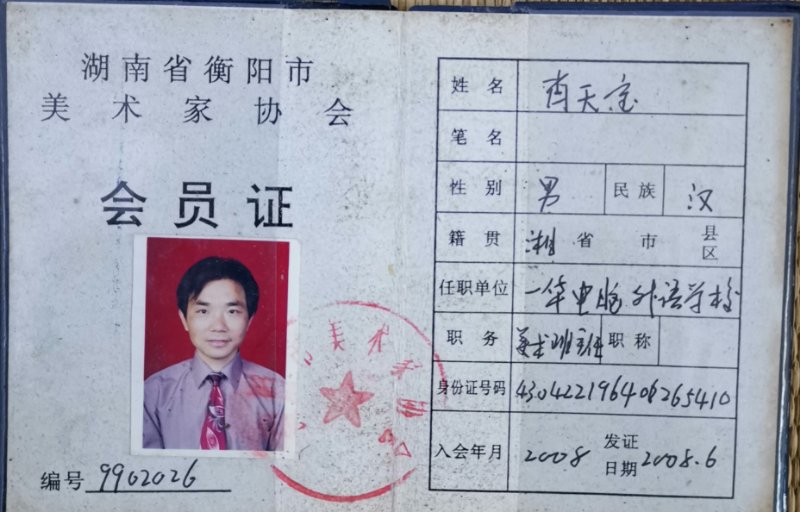 湖南省衡阳市
美术家协会
会员证
编号 9902026
姓名 肖天宝
笔名
性别 男 民族 汉
籍贯 湘 省 市 县区
任职单位 一华电脑外语学校
职务 美术班主任 职称
身份证号码 430422196406265410
入会年月 2008 发证日期 2008.6
美术家